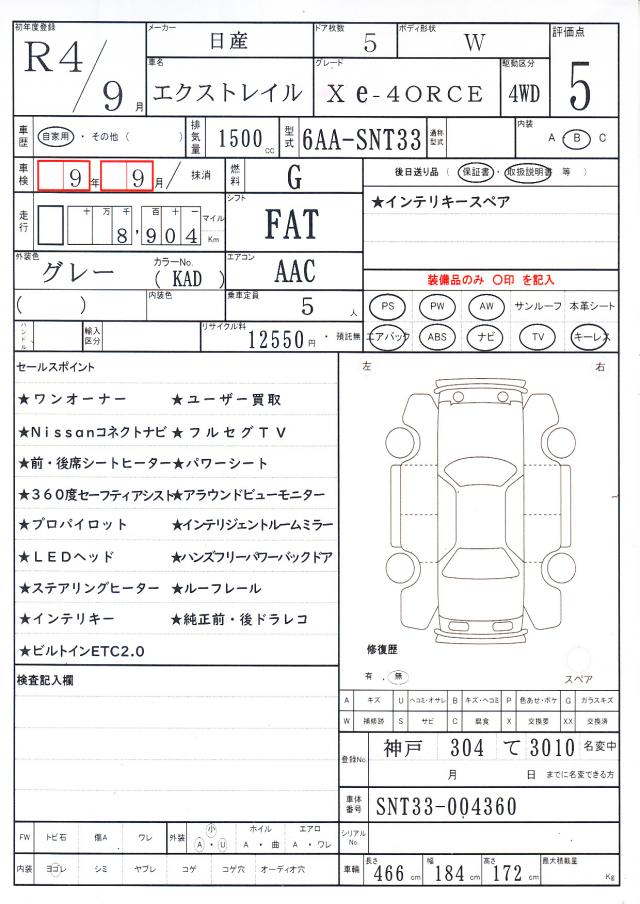 初年度登録 R4/9月
メーカー 日産
ドア枚数 5
ボディ形状 W
評価点 5
車名 エクストレイル
グレード X e-4ORCE
駆動区分 4WD
車歴 自家用 ・ その他 ( )
排気量 1500 cc
型式 6AA-SNT33
通称型式
内装 A ・ B C
車検 9年 9月 / 抹消
燃料 G
後日送り品 ( 保証書 ・ 取扱説明書 等 )
★インテリキースペア
走行 十 万 千 百 十 一
8,904 マイル Km
シフト FAT
外装色 グレー
カラーNo. ( KAD )
エアコン AAC
装備品のみ 〇印 を記入
( )
内装色
乗車定員 5 人
PS PW AW サンルーフ 本革シート
エアバック ABS ナビ TV キーレス
ハンドル
輸入区分
リサイクル料 12550 円 ・ 預託無
セールスポイント
★ワンオーナー ★ユーザー買取
★Nissanコネクトナビ ★フルセグTV
★前・後席シートヒーター ★パワーシート
★360度セーフティアシスト ★アラウンドビューモニター
★プロパイロット ★インテリジェントルームミラー
★LEDヘッド ★ハンズフリーパワーバックドア
★ステアリングヒーター ★ルーフレール
★インテリキー ★純正前・後ドラレコ
★ビルトインETC2.0
左 右
修復歴
有 . 無
スペア
検査記入欄
A キズ U ヘコミ・オサレ B キズ・ヘコミ P 色あせ・ボケ G ガラスキズ
W 補修跡 S サビ C 腐食 X 交換要 XX 交換済
登録No. 神戸 304 て 3010 名変中
月 日 までに名変できる方
車体番号 SNT33-004360
シリアルNo.
FW トビ石 傷A ワレ
外装 小 ホイル エアロ
A ・ U A ・ 曲 A ・ ワレ
内装 ヨゴレ シミ ヤブレ コゲ コゲ穴 オーディオ穴
車輛 長さ 466 cm 幅 184 cm 高さ 172 cm 最大積載量 Kg